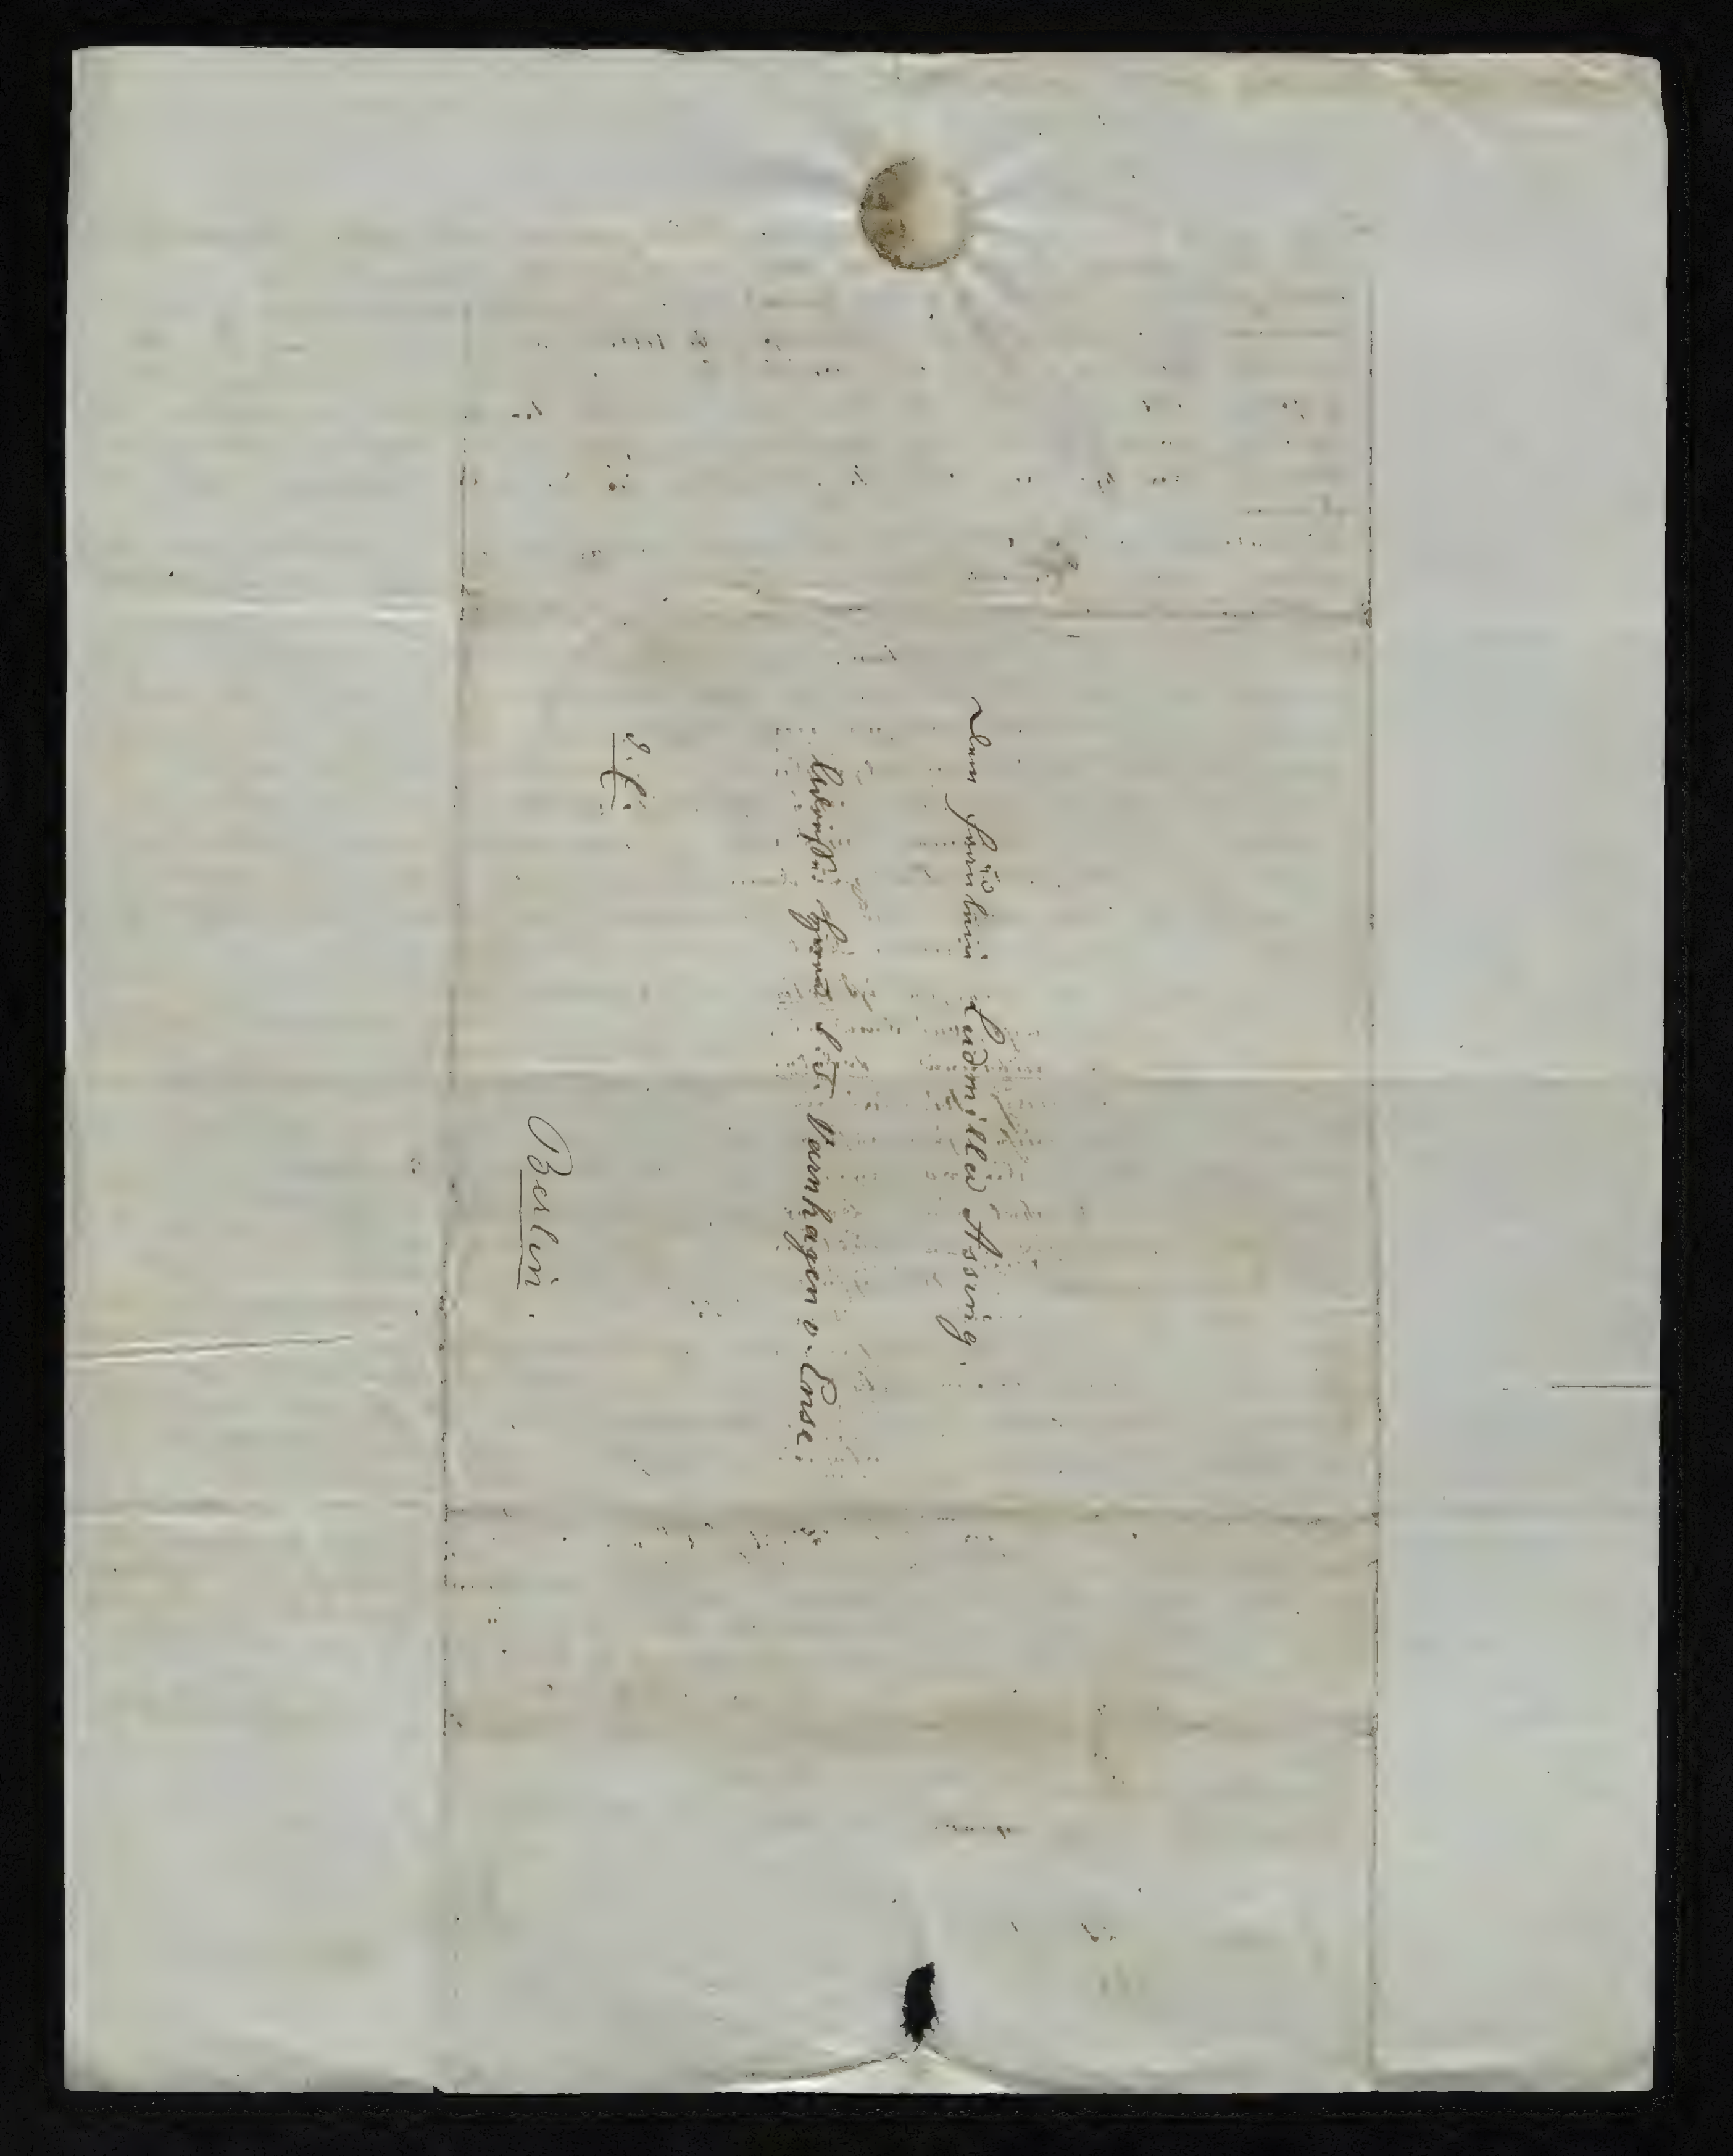 Dem Fräulein Ludmilla Assing.
Adresse: Herrn Varnhagen v. Ense.
d. f.
Berlin.